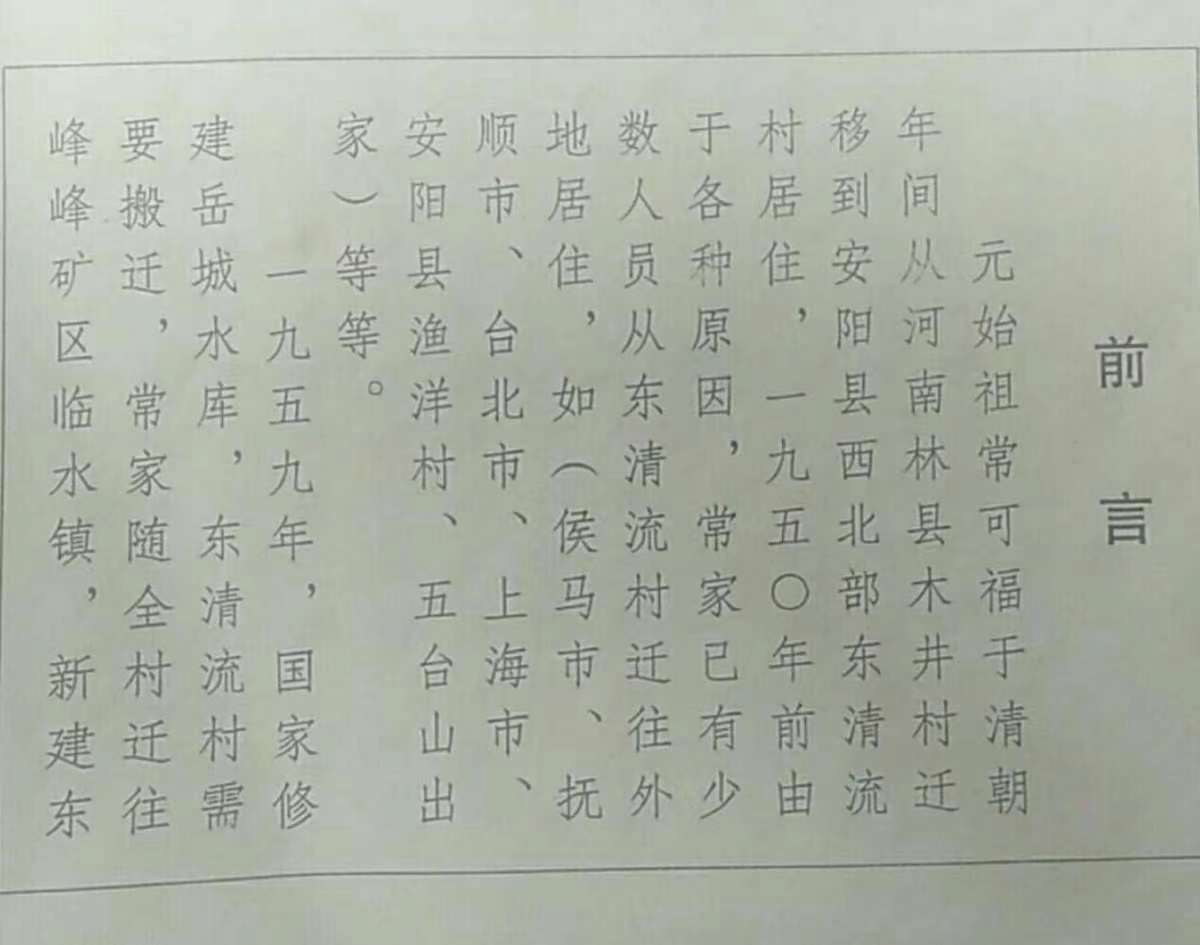 前言
元始祖常可福于清朝
年间从河南林县木井村迁
移到安阳县西北部东清流
村居住，一九五〇年前由
于各种原因，常家已有少
数人员从东清流村迁往外
地居住，如（侯马市、抚
顺市、台北市、上海市、
安阳县渔洋村、五台山出
家）等等。
一九五九年，国家修
建岳城水库，东清流村需
要搬迁，常家随全村迁往
峰峰矿区临水镇，新建东